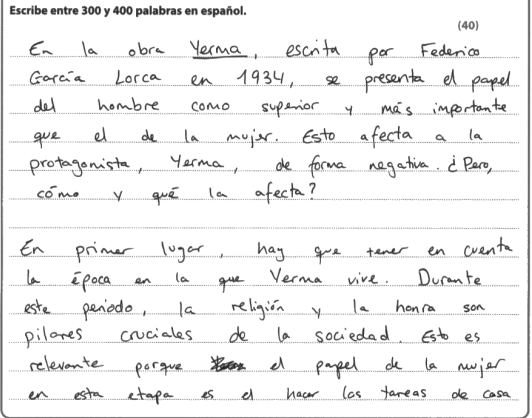 Escribe entre 300 y 400 palabras en español.
(40)
En la obra Yerma, escrita por Federico
García Lorca en 1934, se presenta el papel
del hombre como superior y más importante
que el de la mujer. Esto afecta a la
protagonista, Yerma, de forma negativa. ¿Pero,
cómo y qué la afecta?
En primer lugar, hay que tener en cuenta
la época en la que Yerma vive. Durante
este período, la religión y la honra son
pilares cruciales de la sociedad. Esto es
relevante porque el papel de la mujer
en esta etapa es el hacer las tareas de casa